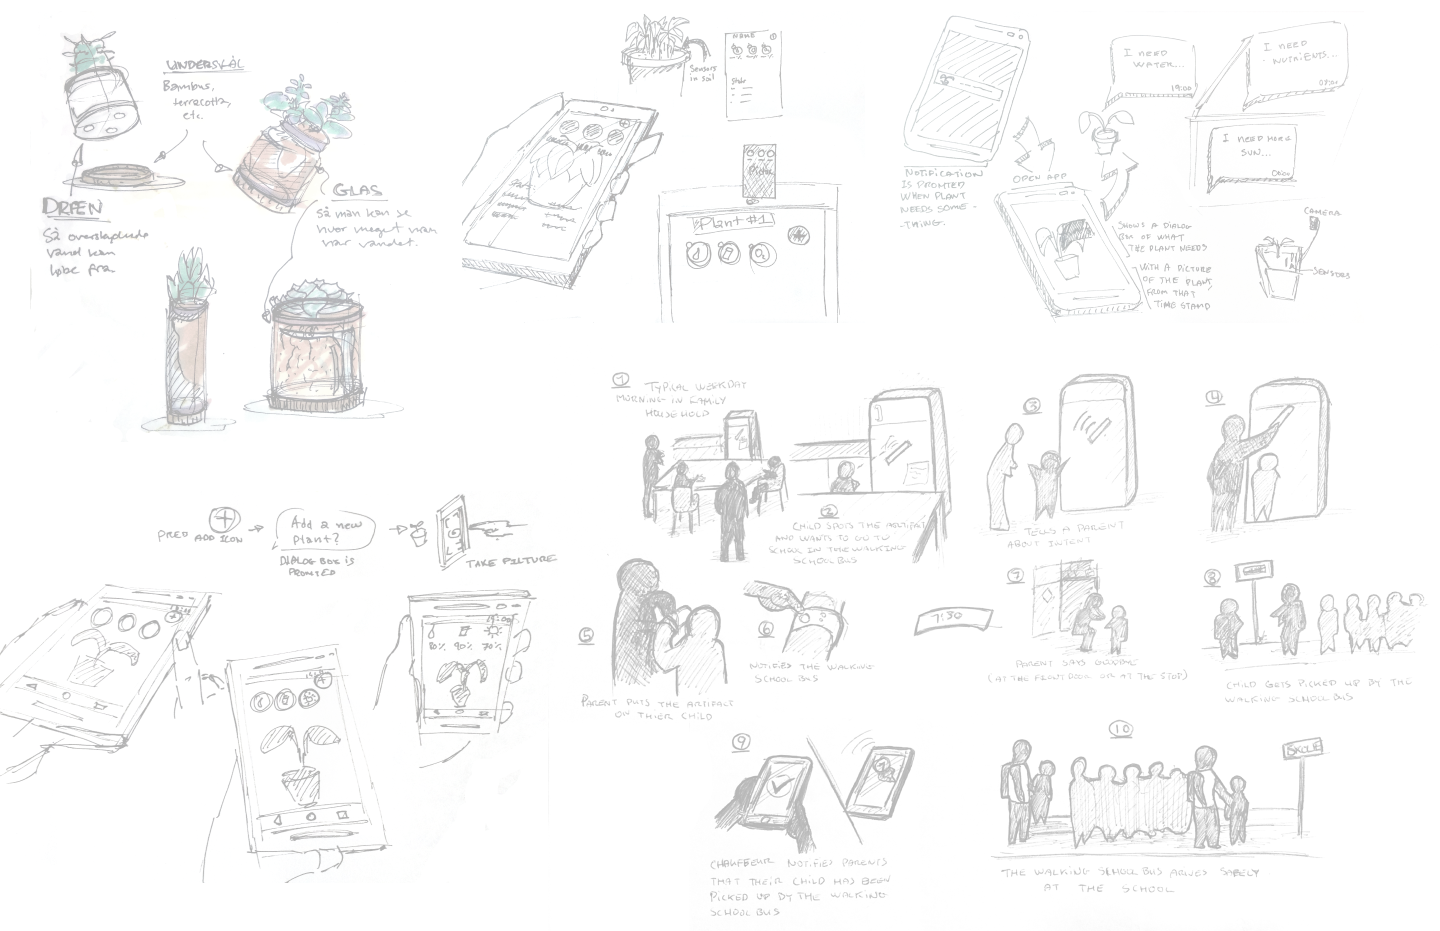 UNDERSKÅL
Bambus,
terracotta,
etc.
DRÆN
Så overskydende
vand kan
løbe fra.
GLAS
Så man kan se
hvor meget man
har vandet.
Sensors
in soil
NAME
State
Picture
Plant #1
NOTIFICATION
IS PROMTED
WHEN PLANT
NEEDS SOME-
-THING.
OPEN APP
I NEED
WATER...
19:00
I NEED
NUTRIENTS...
07:00
I NEED MORE
SUN...
SHOWS A DIALOG
BOX OF WHAT
THE PLANT NEEDS
WITH A PICTURE
OF THE PLANT,
FROM THAT
TIME STAMP
CAMERA
SENSORS
PRES ADD ICON
Add a new
plant?
DIALOG BOX IS
PROMTED
TAKE PICTURE
80% 90% 70%
1
TYPICAL WEEKDAY
MORNING IN FAMILY
HOUSEHOLD
2
CHILD SPOTS THE ARTIFACT
AND WANTS TO GO TO
SCHOOL IN THE WALKING
SCHOOL BUS
3
TELLS A PARENT
ABOUT INTENT
4
5
PARENT PUTS THE ARTIFACT
ON THIER CHILD
6
NOTIFIES THE WALKING
SCHOOL BUS
7:30
7
PARENT SAYS GOODBYE
(AT THE FRONT DOOR OR AT THE STOP)
8
CHILD GETS PICKED UP BY THE
WALKING SCHOOL BUS
9
CHAUFFEUR NOTIFIES PARENTS
THAT THEIR CHILD HAS BEEN
PICKED UP BY THE WALKING
SCHOOL BUS
10
SKOLE
THE WALKING SCHOOL BUS ARIVES SAFELY
AT THE SCHOOL